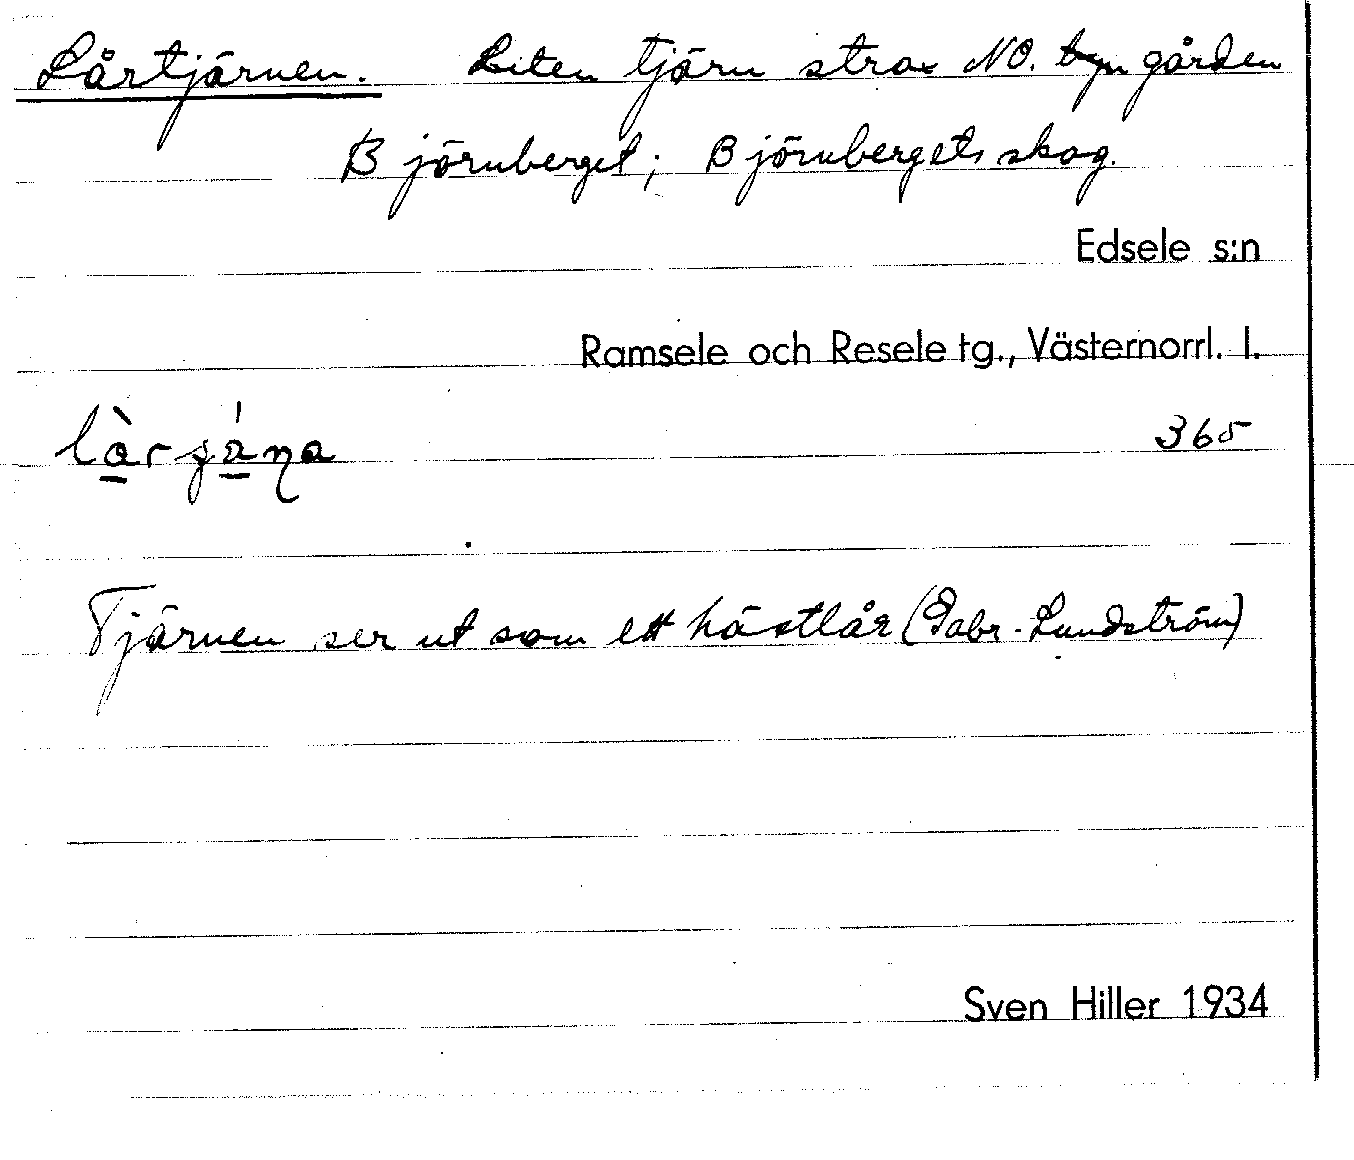 Lårtjärnen. Liten tjärn strax NO. byn gården
Björnberget; Björnbergets skog.
Edsele s:n
Ramsele och Resele tg., Västernorrl. l.
365
Tjärnen ser ut som ett hästlår (Gabr. Lundström)
Sven Hiller 1934